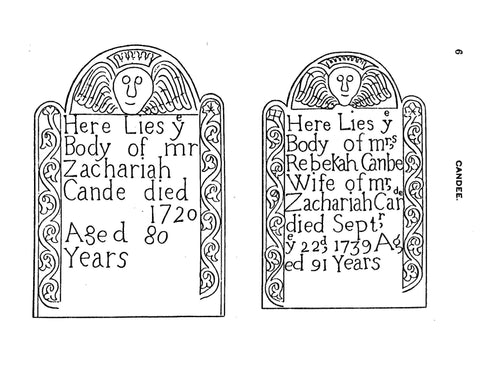 Here Lies yᵉ
Body of mr
Zachariah
Cande died
1720
Aged 80
Years
Here Lies yᵉ
Body of mrs
Rebekah Canbe
Wife of mr,
Zachariah Cande
died Septr
yᵉ 22d 1739 Ag
ed 91 Years
6
CANDEE.